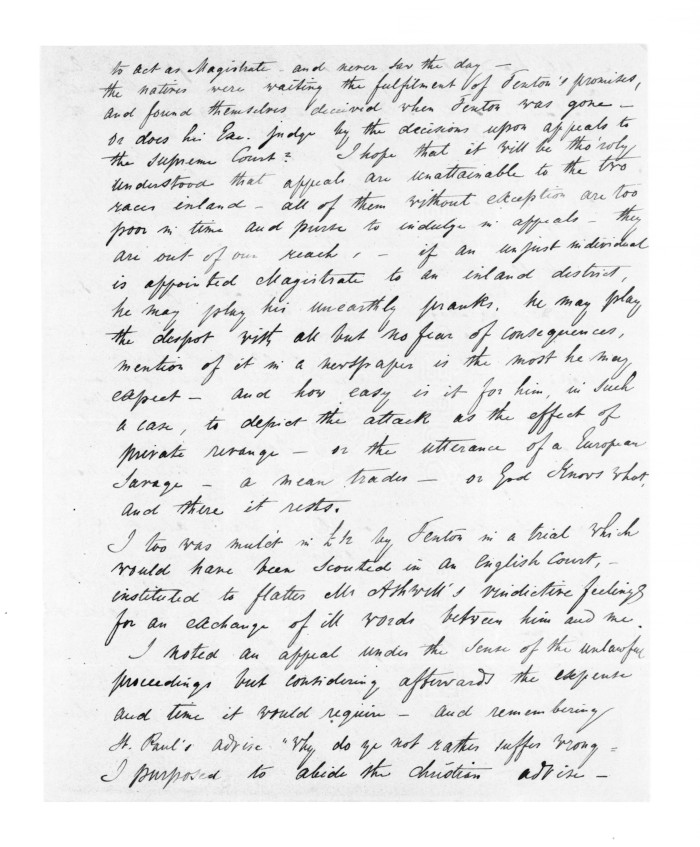 to act as Magistrate - and never saw the day -
the natives were waiting the fulfilment of Fenton's promises,
and found themselves deceived when Fenton was gone -
or does his Exc. judge by the decisions upon appeals to
the supreme Court? I hope that it will be tho'roly
understood that appeals are unattainable to the two
races inland - all of them without exception are too
poor in time and purse to indulge in appeals - they
are out of our reach, - if an unjust individual
is appointed Magistrate to an inland district,
he may play his unearthly pranks. he may play
the despot with all but no fear of consequences,
mention of it in a newspaper is the most he may
expect - and how easy is it for him, in such
a case, to depict the attack as the effect of
private revange - or the utterance of a European
Savage - a mean trader - or God Knows what,
and there it rests.
I too was mulct in by Fenton in a trial which
would have been scouted in an English Court, -
instituted to flatter Mr Ashwell's vindictive feelings
for an exchange of ill words between him and me.
I noted an appeal under the sense of the unlawful
proceedings but considering afterwards the expense
and time it would require - and remembering
St. Paul's advise "Why do ye not rather suffer wrong =
I purposed to abide the christian advise -